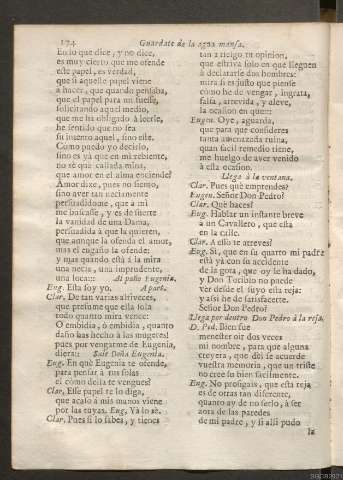 174 Guardate de la agua mansa.
En lo que dice, y no dice,
es muy cierto que me ofende
este papel, es verdad,
que si aquelle papel viene
a hacer, que quando pensaba,
que el papel para mi fuesse,
solicitando aquel medio,
que me ha obligado à leerle,
he sentido que sea
su intento aquel, sino este.
Como puedo yo decirlo,
sino es yà que en mi
no sè què callada mina,
que amor en el alma enciende?
Amor dixe, pues no siento,
sino aver tan neciamente
persuadidome, que à mi
me buscasse, y es de suerte
la vanidad de una Dama,
persuadida à que la quieren,
que aunque la ofenda el amor,
mas el engaño la ofende:
y mas quando està à la mira
una necia, una imprudente,
una loca:: Al paño Eugenia.
Eug. Esta soy yo. Aparte.
Clar. De tan varias altiveces,
que presume que ella sola
todo quanto mira vence:
O embidia, ò embidia, quanto
daño has hecho à las mugeres!
pues por vengarme de Eugenia,
diera:: Sale Doña Eugenia.
Eug. En què Eugenia te ofende,
para pensar à tus solas
el còmo della te vengues?
Clar. Esse papel te lo diga,
que acaso à mis manos viene
por las tuyas. Eug. Yà lo sè.
Clar. Pues si lo sabes, y tienes
tan à riesgo tu opinion,
que estriva solo en que lleguen
à declararse dos hombres:
mira si es justo que piense
còmo he de vengar, ingrata,
falsa, atrevida, y aleve,
la ocasion en que::
Eugen. Oye, aguarda,
que para que consideres
tanta amenazada ruina,
quan facil remedio tiene,
me huelgo de aver venido
à esta ocasion.
Llega à la ventana.
Clar. Pues què emprendes?
Eugen. Señor Don Pedro?
Clar. Què haces?
Eug. Hablar un instante breve
à un Cavallero, que està
en la calle.
Clar. A esso te atreves?
Eug. Sì, que en su quarto mi padre
està yà con su accidente
de la gota, que oy le ha dado,
y Don Toribio no puede
ver desde el suyo esta reja:
y assi he de satisfacerte.
Señor Don Pedro?
Llega por dentro Don Pedro à la reja.
D. Ped. Bien fue
menester oir dos veces
mi nombre, para que alguna
creyera, que dèl se acuerde
vuestra memoria, que un triste
no cree su bien facilmente.
Eug. No prosigais, que esta reja
es de otras tan diferente,
quanto ay de no serlo, à ser
aora de las paredes
de mi padre, y si alli pudo
la